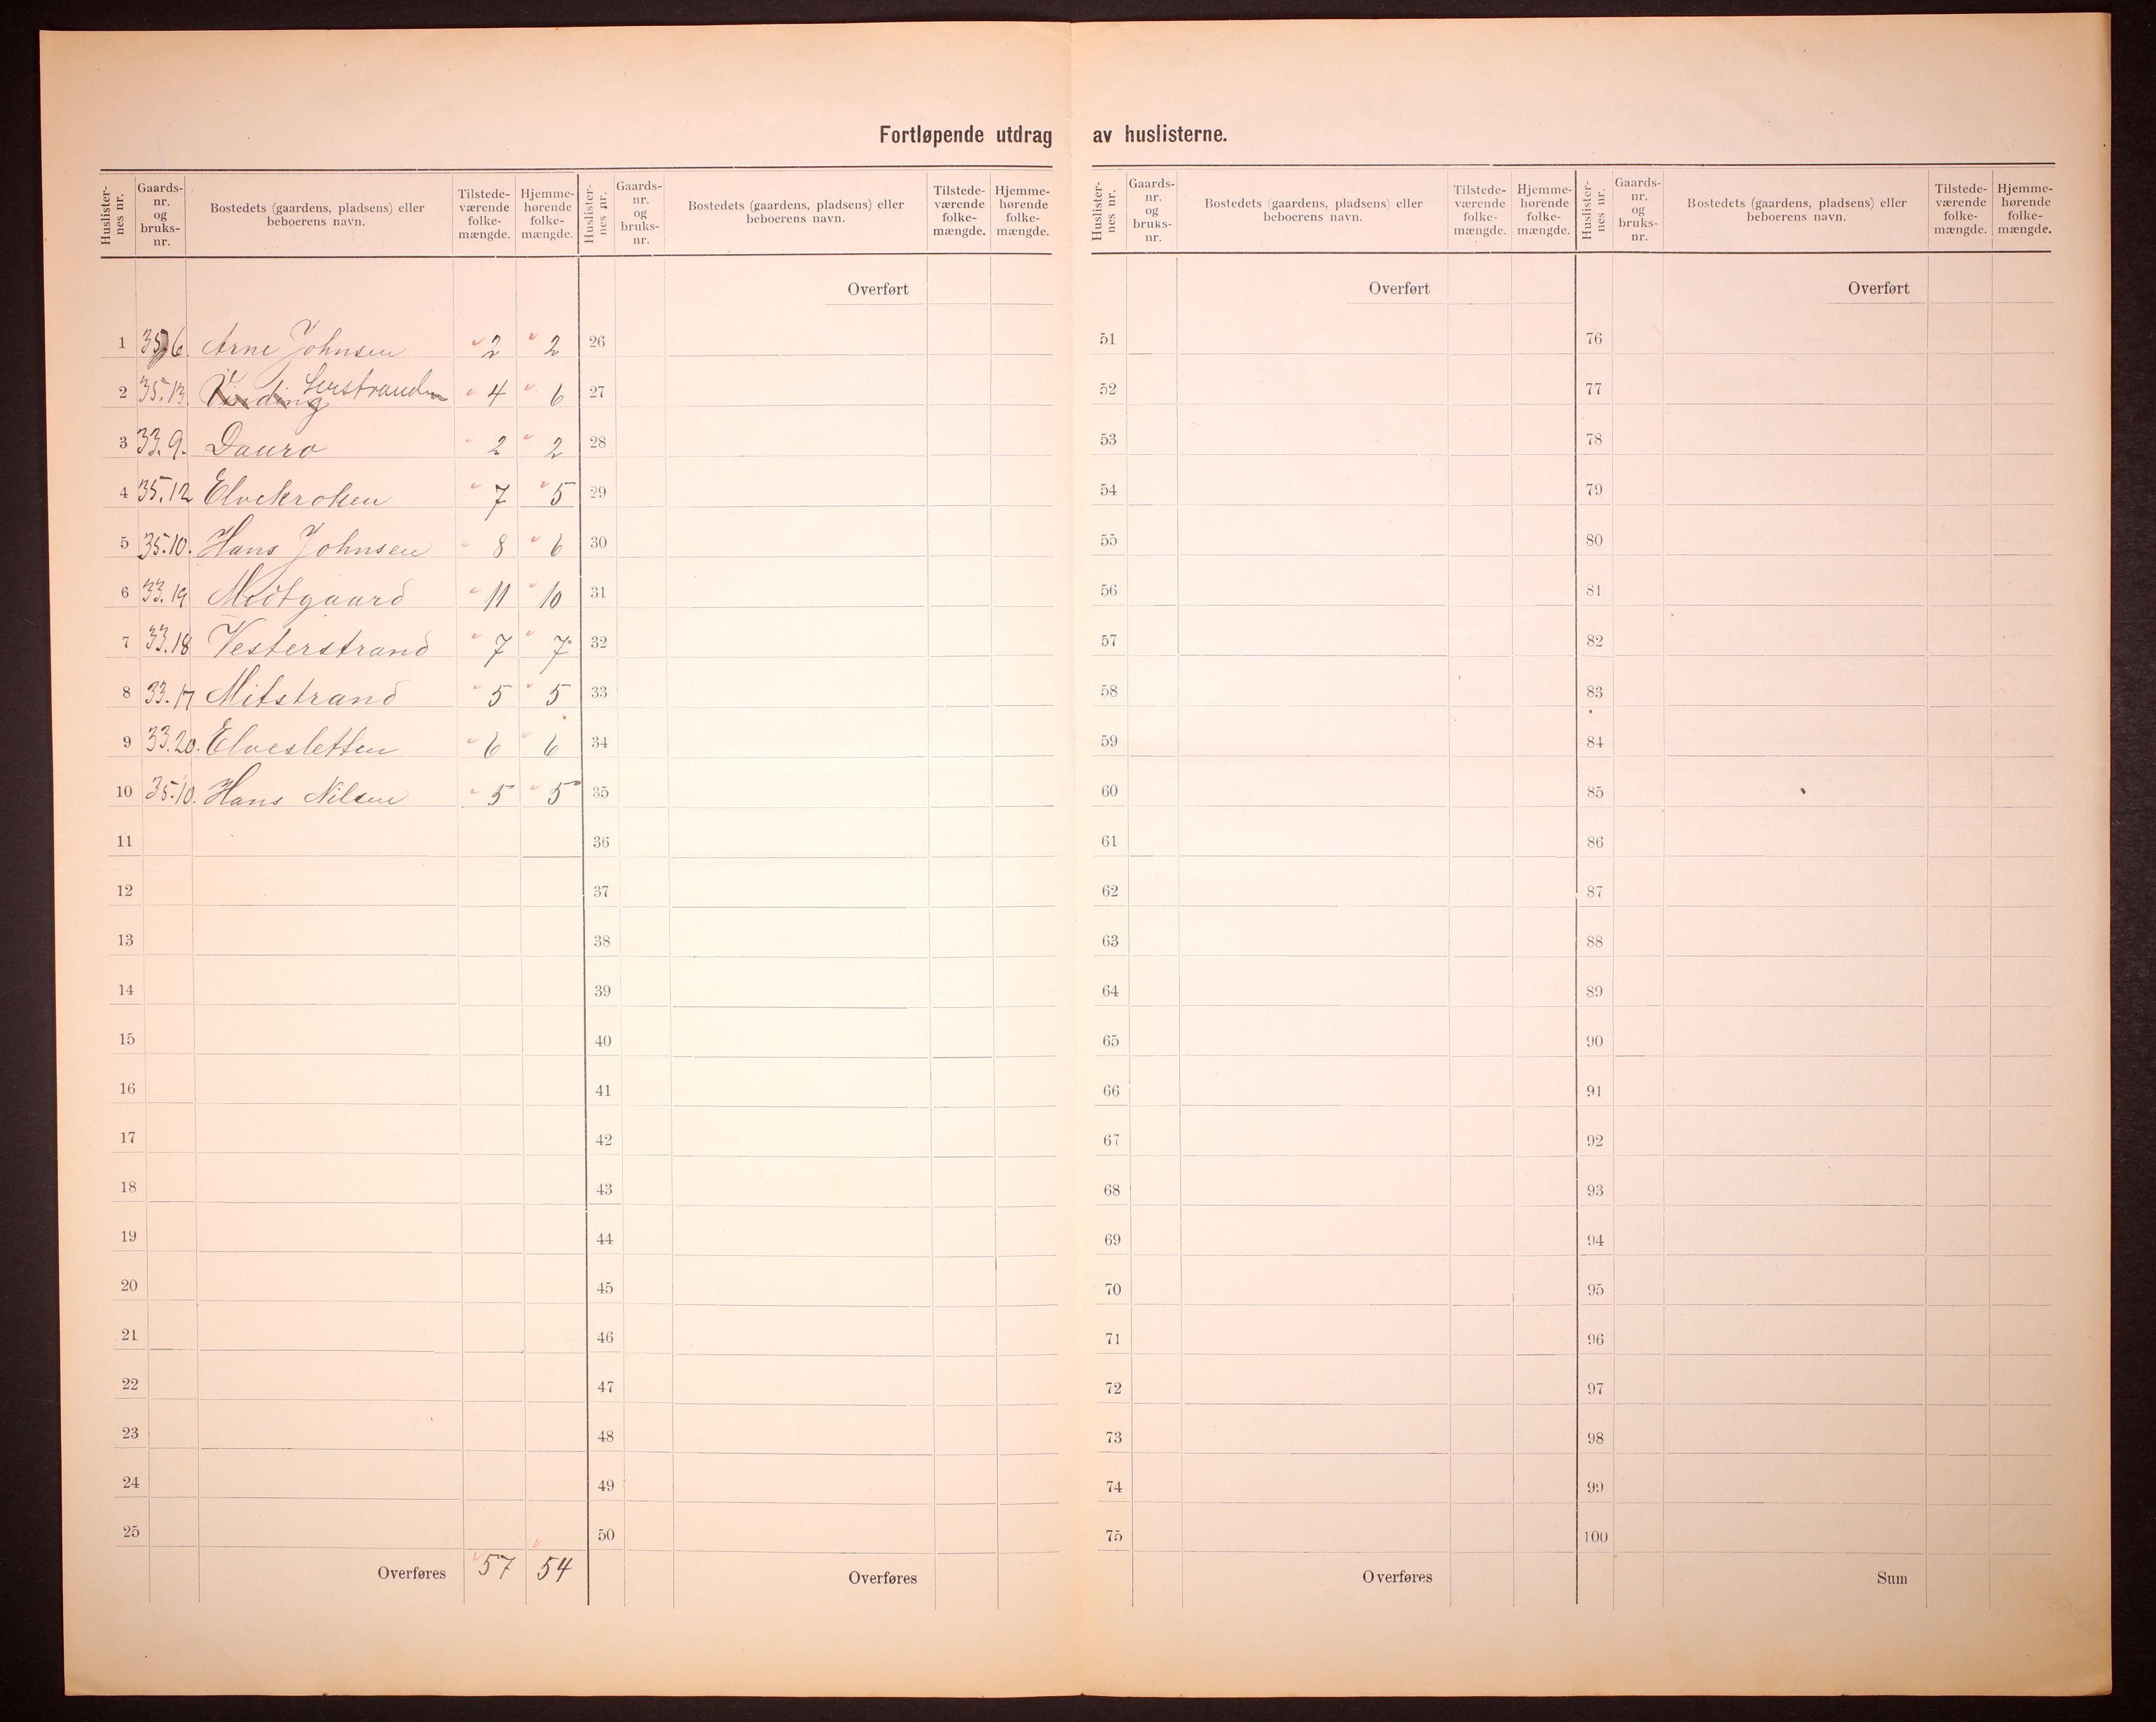 Fortløpende utdrag av huslisterne.
Huslisternes nr. Gaards-nr. og bruks-nr. Bostedets (gaardens, pladsens) eller beboerens navn. Tilstedeværende folkemængde. Hjemmehørende folkemængde.
1 35.6. Arne Johnsen 2 2
2 35.13. 4 6
3 33.9. Dauro 2 2
4 35.12 Elvekroken 7 5
5 35.10. Hans Johnsen 8 6
6 33.19 Midtgaard 11 10
7 33.18 Vesterstrand 7 7
8 33.17 Mitstrand 5 5
9 33.20. Elvesletten 6 6
10 35.10. Hans Nilsen 5 5
11
12
13
14
15
16
17
18
19
20
21
22
23
24
25
Overføres 57 54
Huslisternes nr. Gaards-nr. og bruks-nr. Bostedets (gaardens, pladsens) eller beboerens navn. Tilstedeværende folkemængde. Hjemmehørende folkemængde.
Overført
26
27
28
29
30
31
32
33
34
35
36
37
38
39
40
41
42
43
44
45
46
47
48
49
50
Overføres
Huslisternes nr. Gaards-nr. og bruks-nr. Bostedets (gaardens, pladsens) eller beboerens navn. Tilstedeværende folkemængde. Hjemmehørende folkemængde.
Overført
51
52
53
54
55
56
57
58
59
60
61
62
63
64
65
66
67
68
69
70
71
72
73
74
75
Overføres
Huslisternes nr. Gaards-nr. og bruks-nr. Bostedets (gaardens, pladsens) eller beboerens navn. Tilstedeværende folkemængde. Hjemmehørende folkemængde.
Overført
76
77
78
79
80
81
82
83
84
85
86
87
88
89
90
91
92
93
94
95
96
97
98
99
100
Sum